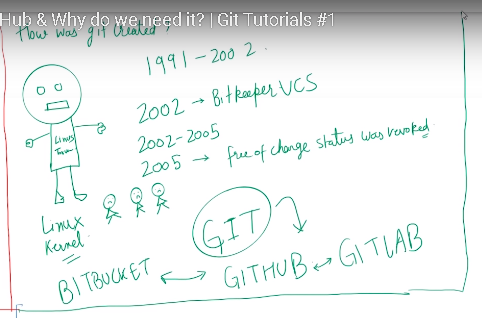 Hub & Why do we need it? | Git Tutorials #1
How was git created?
1991-2002.
2002 → Bitkeeper VCS
2002-2005
2005 → free of change status was revoked.
Linus
Linux
Kernel
GIT
BITBUCKET ↔ GITHUB ↔ GITLAB